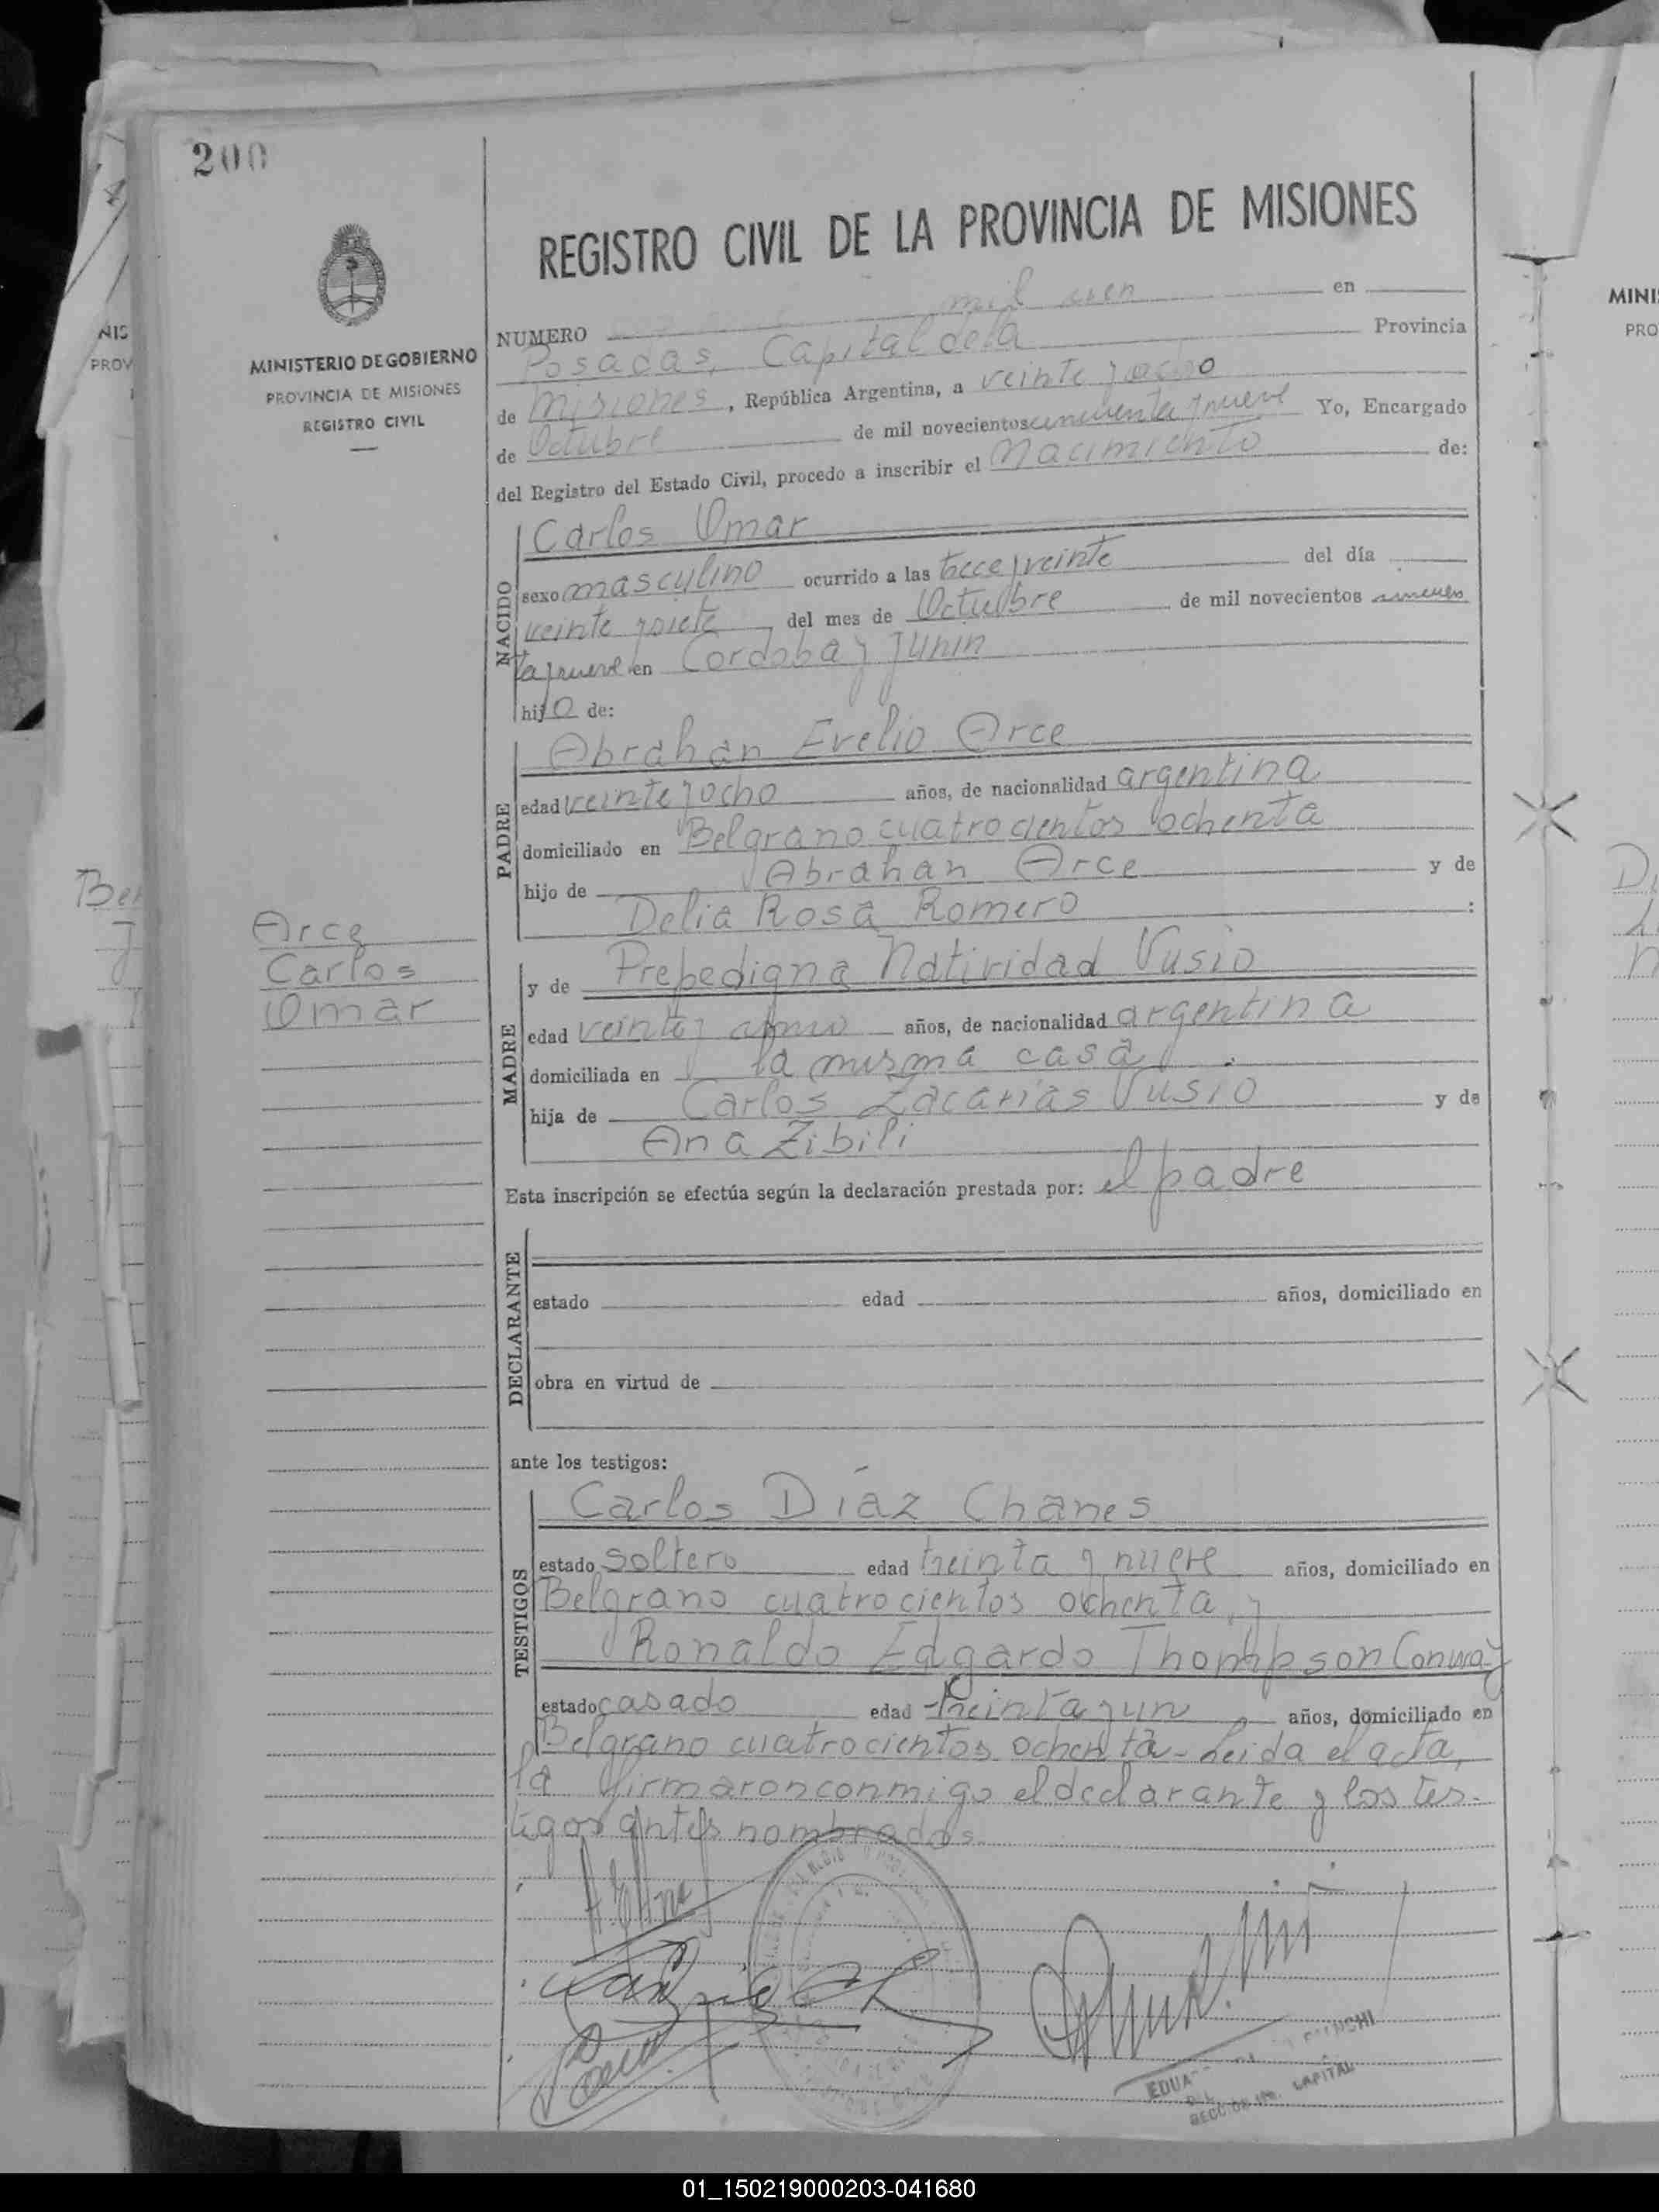 200
REGISTRO CIVIL DE LA PROVINCIA DE MISIONES
MINISTERIO DE GOBIERNO
PROVINCIA DE MISIONES
REGISTRO CIVIL
NUMERO mil cien en
Posadas, Capital de la Provincia
de Misiones, República Argentina, a veinte y ocho
de Octubre de mil novecientos cincuenta y nueve Yo, Encargado
del Registro del Estado Civil, procedo a inscribir el nacimiento de:
NACIDO
Carlos Omar
sexo masculino ocurrido a las trece y veinte del día
veinte y siete del mes de Octubre de mil novecientos cincuen
ta y nueve en Cordoba y Junin
hijo de:
PADRE
Abrahan Evelio Arce
edad veinte y ocho años, de nacionalidad argentina
domiciliado en Belgrano cuatrocientos ochenta
hijo de Abrahan Arce y de
Delia Rosa Romero :
MADRE
y de Prepedigna Natividad Vusio
edad veinte y años, de nacionalidad argentina
domiciliada en la misma casa
hija de Carlos Zacarías Vusio y de
Ana Zibili
Arce
Carlos
Omar
Esta inscripción se efectúa según la declaración prestada por: el padre
DECLARANTE
estado edad años, domiciliado en
obra en virtud de
ante los testigos:
TESTIGOS
Carlos Díaz Chanes
estado soltero edad treinta y nueve años, domiciliado en
Belgrano cuatrocientos ochenta, y
Ronaldo Edgardo Thompson Conway
estado casado edad treinta y un años, domiciliado en
Belgrano cuatrocientos ochenta - Leida el acta,
la firmaron conmigo el declarante y los tes-
tigos antes nombrados.
CAPITAL
01_150219000203-041680